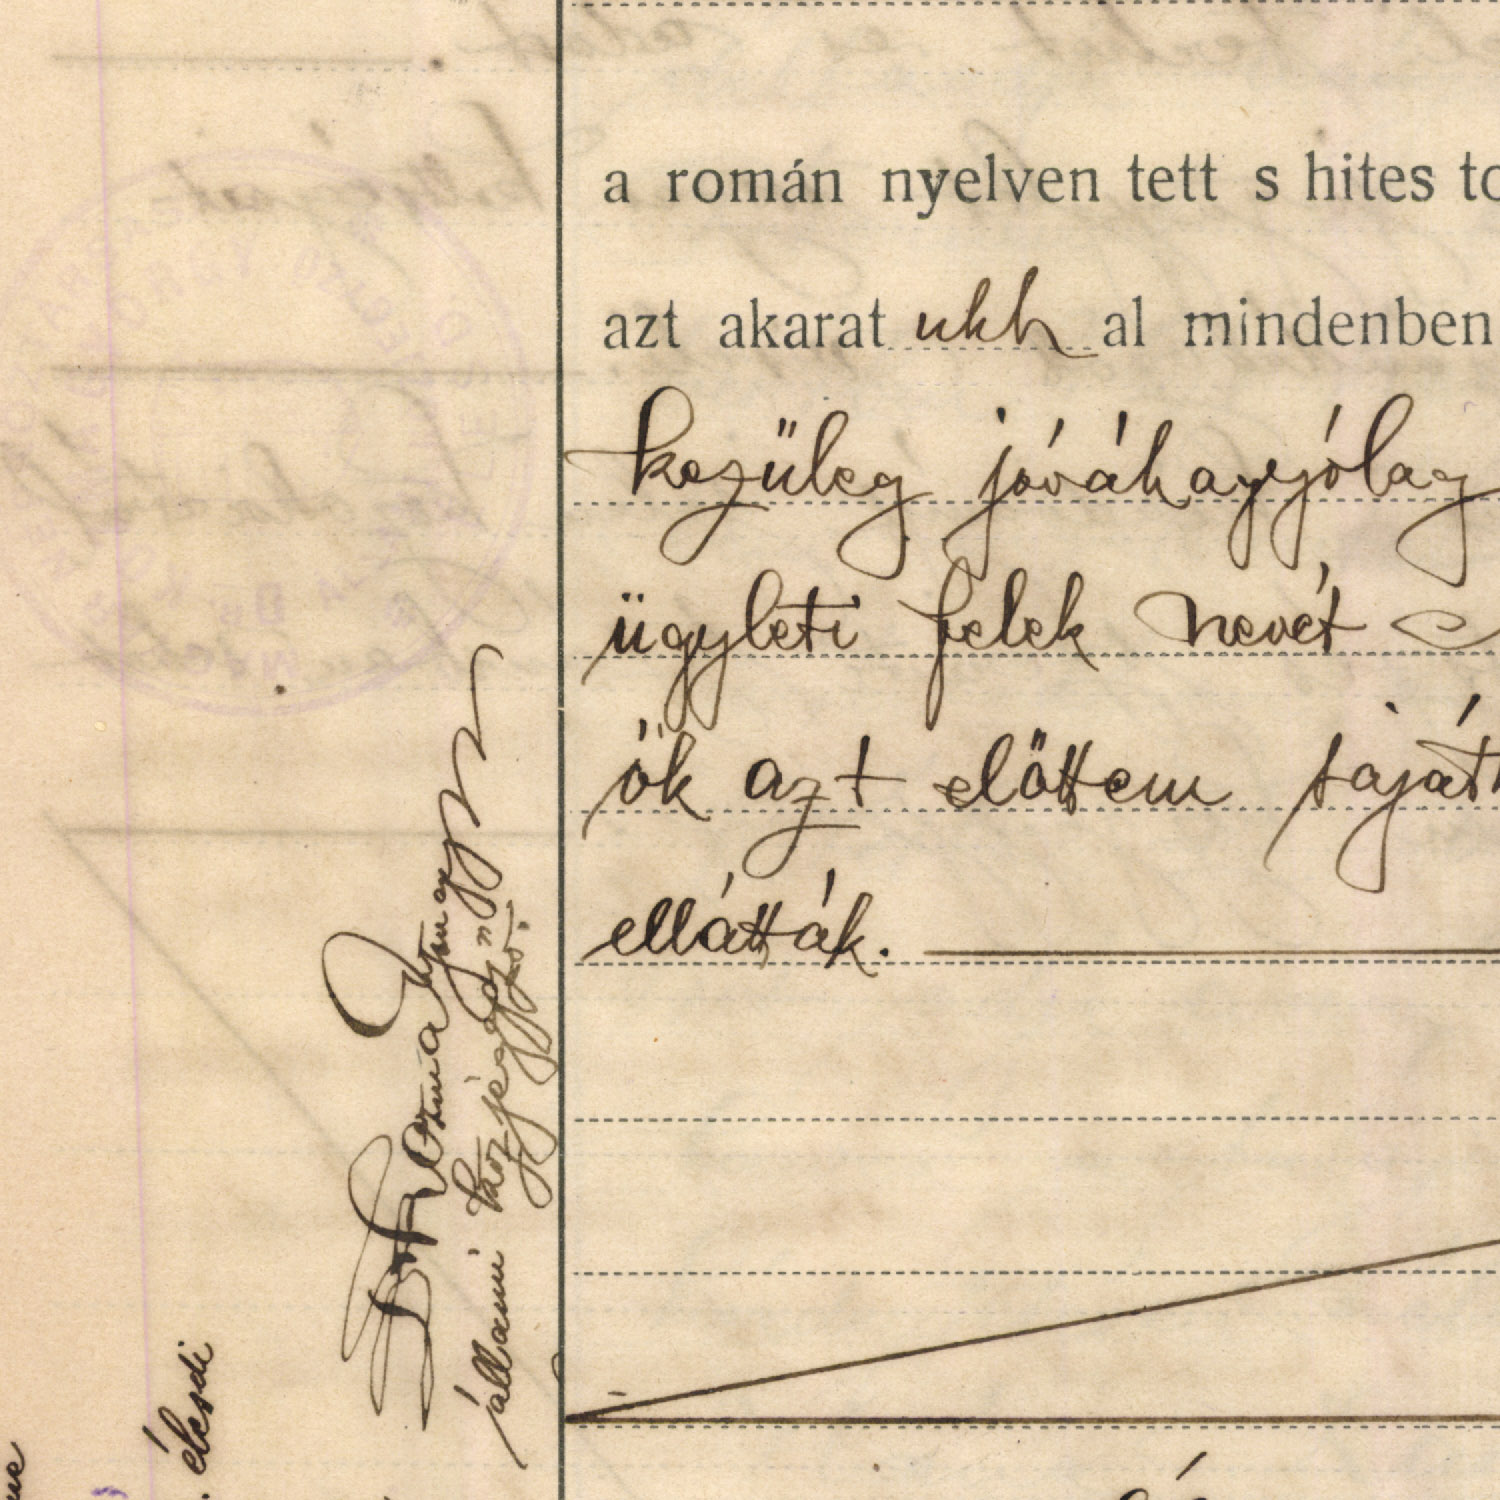 a román nyelven tett s hites to
azt akarat ukh al mindenben
kezüleg jóváhagyólag
ügyleti felek nevét
ők azt előttem saját
ellátták.
állami közjegyző
élesdi